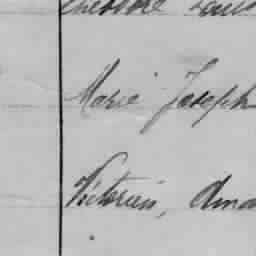 Marie Joseph
Victorien, Ama